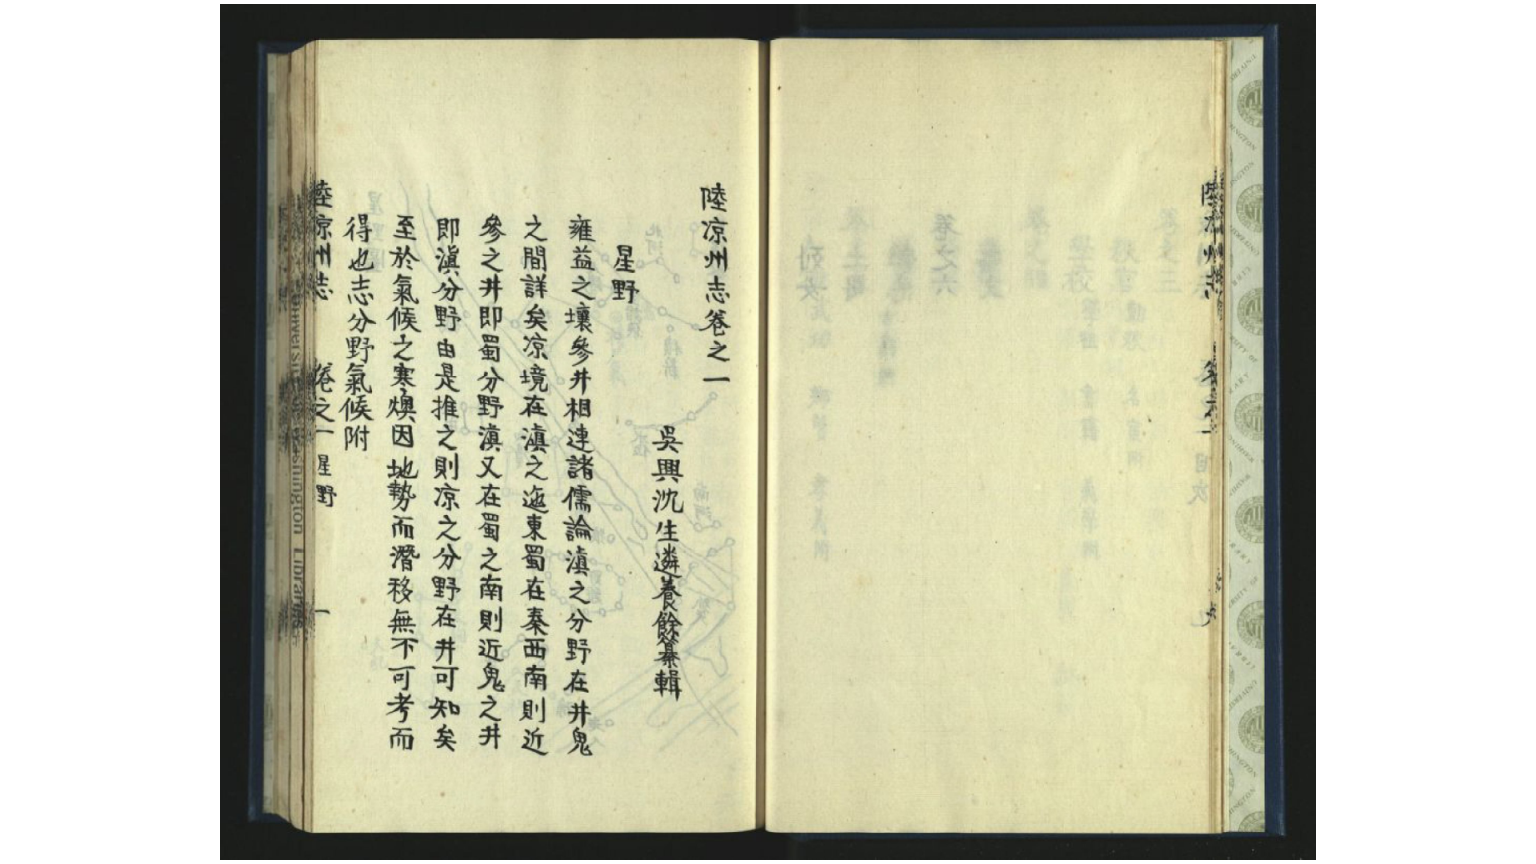 陸凉州志卷之一
吳興沈生遴養餘纂輯
星野
雍益之壤參井相連諸儒論滇之分野在井鬼
之間詳矣凉境在滇之迤東蜀在秦西南則近
參之井即蜀分野滇又在蜀之南則近鬼之井
即滇分野由是推之則凉之分野在井可知矣
至於氣候之寒燠因地勢而潛移無不可考而
得也志分野氣候附
陸凉州志 卷之一 星野 一